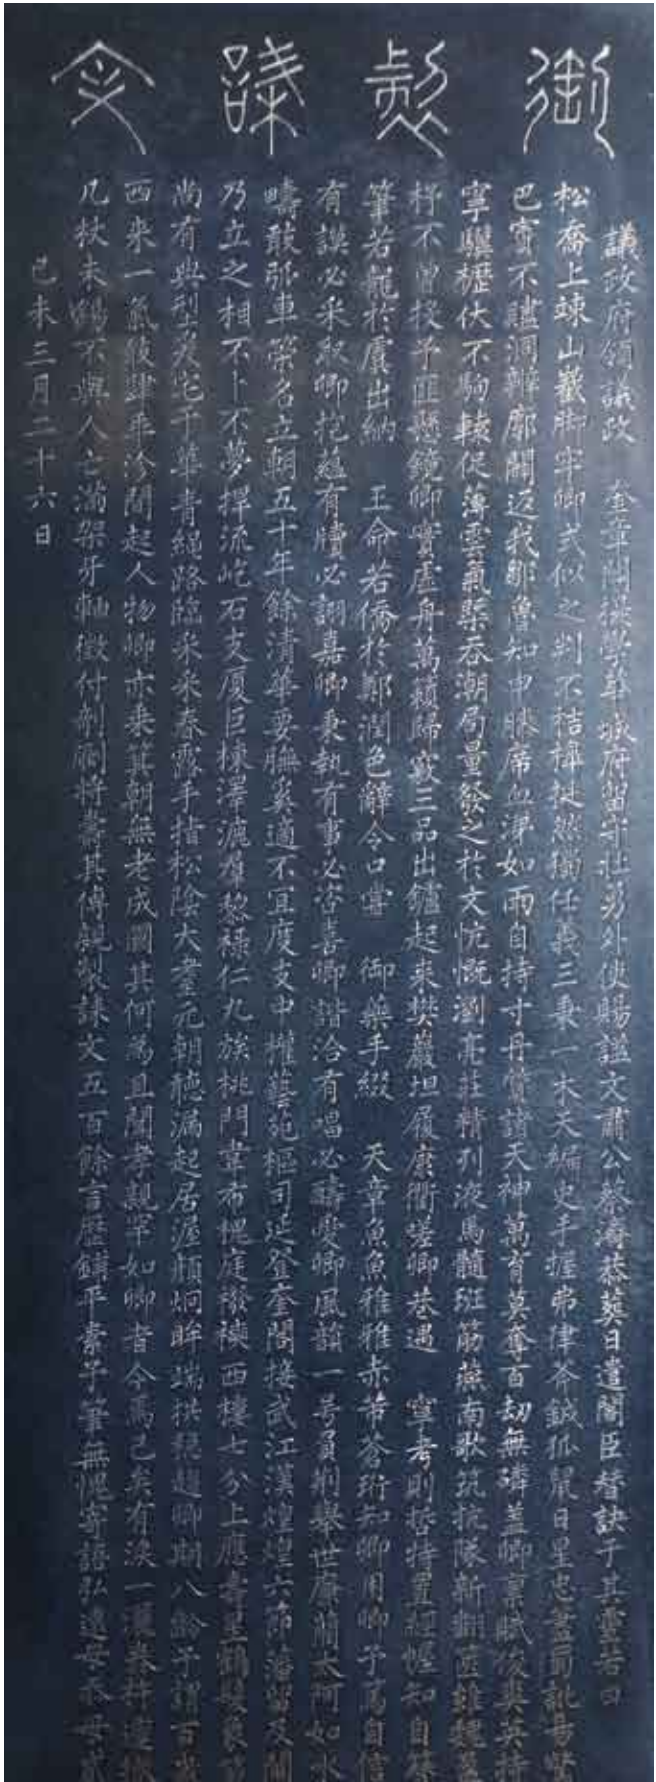 御製誄文
議政府領議政　奎章閣提學華城府留守壯勇外使賜諡文肅公蔡濟恭葬日遣閣臣替訣于其靈若曰
松喬上竦山嶽脚牢卿式似之判不桔橰徒然擔任義三秉一木天編史手握弗律斧鉞狐鼠日星忠藎罰訛旁
巴賨不洞辟廓闢返我鄒魯知申牒席血淚如雨自持寸丹質諸天神萬育莫奪百劫無磷蓋卿稟賦俊爽英特
寧驥櫪伏不駒轅促薄雲氣槩吞潮局量發之於文忼慨瀏亮莊精列液馬髓班筋燕南歌筑拔隊斬新
杼不曾投予匪懸鏡卿實虛舟萬籟歸竅三品出鑪起來樊巖坦履康衢嗟卿巷遇　寧考則哲特置經幄知自
筆若龍於虞出納　王命若僑於鄭潤色辭令口嘗　御藥手綴　天章魚魚雅雅赤芾蒼珩知卿用卿予篤自信
有謨必采取卿抱蘊有牘必詡嘉卿秉執有事必咨喜卿諧洽有唱必酬愛卿風韻一號負荊舉世廉藺太阿如水
疇敢弧車策名立朝五十年餘清華要膴奚適不宜度支中權藝苑樞司延登奎閣接武江漢煌煌六節藩留及閫
乃立之相不卜不夢捍流屹石支厦巨棟澤漉羣黎祿仁九族桃門韋布槐庭襏襫西樓七分上應壽星鶴髮袞衣
尚有典型爰宅于華青繩路臨采采春露手指松陰大耋元朝聽漏起居渥顏炯眸端拱翹趨卿期八齡予謂百歲
西來一氣復肆乖沴間起人物卿亦乘箕朝無老成國其何為且聞孝親罕如卿者今焉已矣有淚一灑桑梓邇楸
几杖未賜不與人亡滿架牙軸徵付剞劂將壽其傳親製誄文五百餘言歷鑄平素予筆無愧寄語弘遠毋忝毋貳
己未三月二十六日